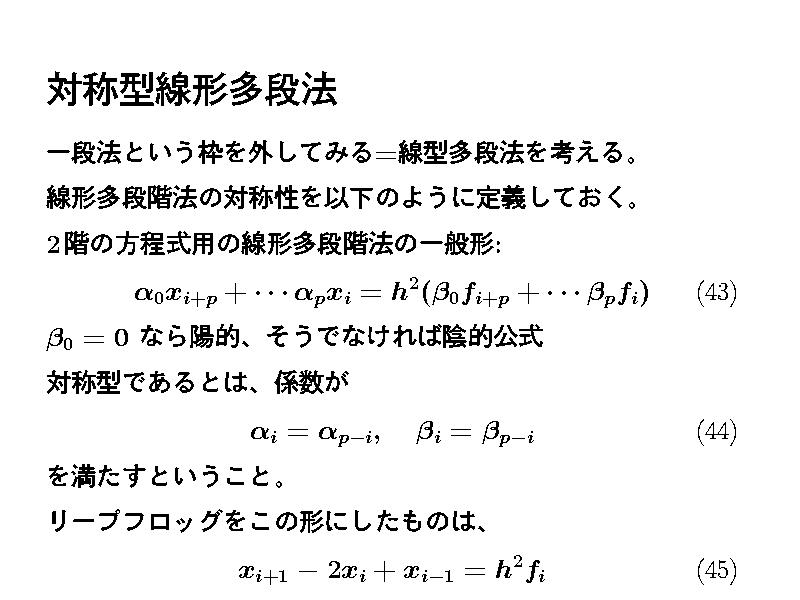 対称型線形多段法
一段法という枠を外してみる=線型多段法を考える。
線形多段階法の対称性を以下のように定義しておく。
2階の方程式用の線形多段階法の一般形:
α₀xᵢ₊ₚ + ⋯ αₚxᵢ = h²(β₀fᵢ₊ₚ + ⋯ βₚfᵢ) (43)
β₀ = 0 なら陽的、そうでなければ陰的公式
対称型であるとは、係数が
αᵢ = αₚ₋ᵢ, βᵢ = βₚ₋ᵢ (44)
を満たすということ。
リープフロッグをこの形にしたものは、
xᵢ₊₁ − 2xᵢ + xᵢ₋₁ = h²fᵢ (45)